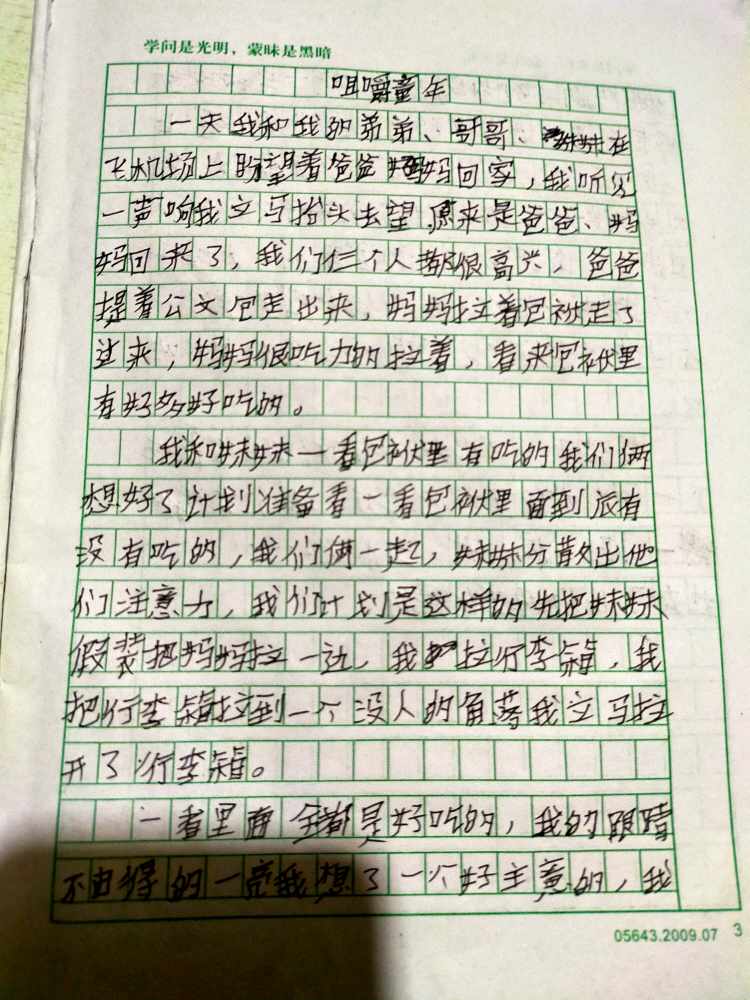 学问是光明，蒙昧是黑暗
咀嚼童年
一天我和我的弟弟、哥哥、妹妹在
飞机场上盼望着爸爸妈妈回家，我听见
一声响我立马抬头去望原来是爸爸、妈
妈回来了，我们仨个人都很高兴，爸爸
提着公文包走出来，妈妈拉着包袱走了
过来，妈妈很吃力的拉着，看来包袱里
有好多好吃的。
我和妹妹一看包袱里有吃的我们俩
想好了计划准备看一看包袱里面到底有
没有吃的，我们俩一起，妹妹分散出他
们注意力，我们计划是这样的先把妹妹
假装把妈妈拉一边，我拉行李箱，我
把行李箱拉到一个没人的角落我立马拉
开了行李箱。
一看里面全都是好吃的，我的眼睛
不由得的一亮我想了一个好主意的，我
05643.2009.07 3